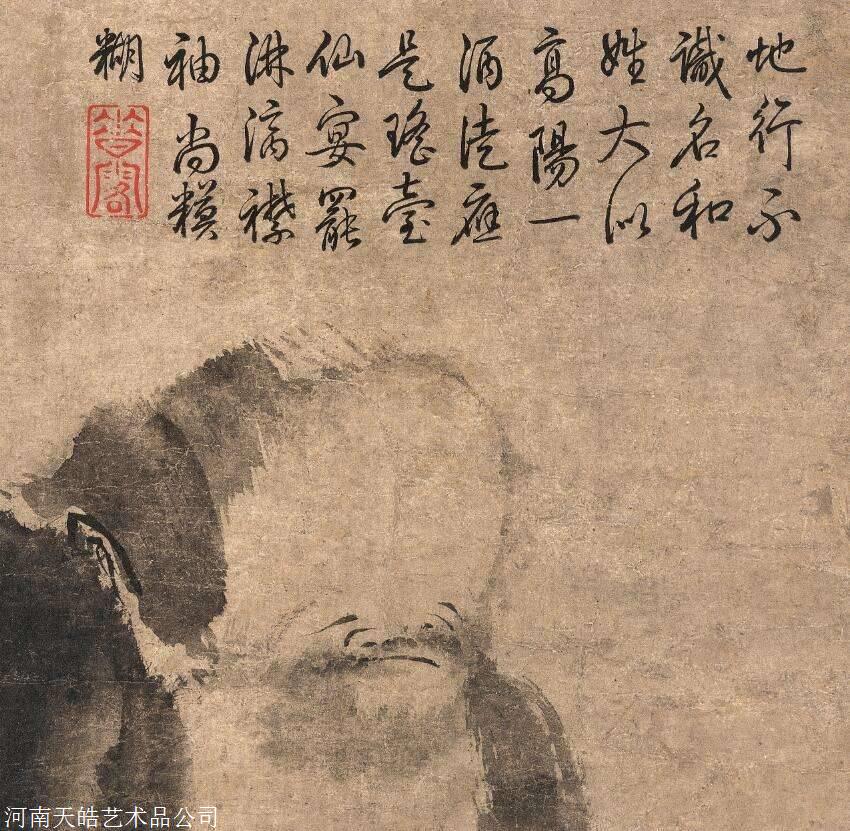 地行不
識名和
姓大似
高陽一
酒徒應
是瑤臺
仙宴罷
淋漓襟
袖尚糢
糊
河南天皓艺术品公司